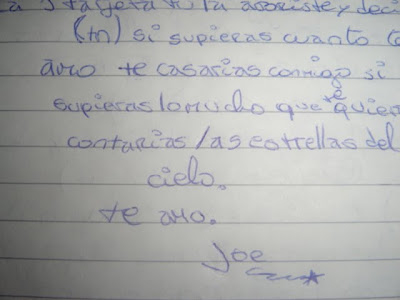 a s tarjeta + la abriste y deci
(tn) si supieras cuanto te
amo te casarias conmigo si
supieras lo mucho que te quier
contarias las estrellas del
cielo.
te amo.
Joe